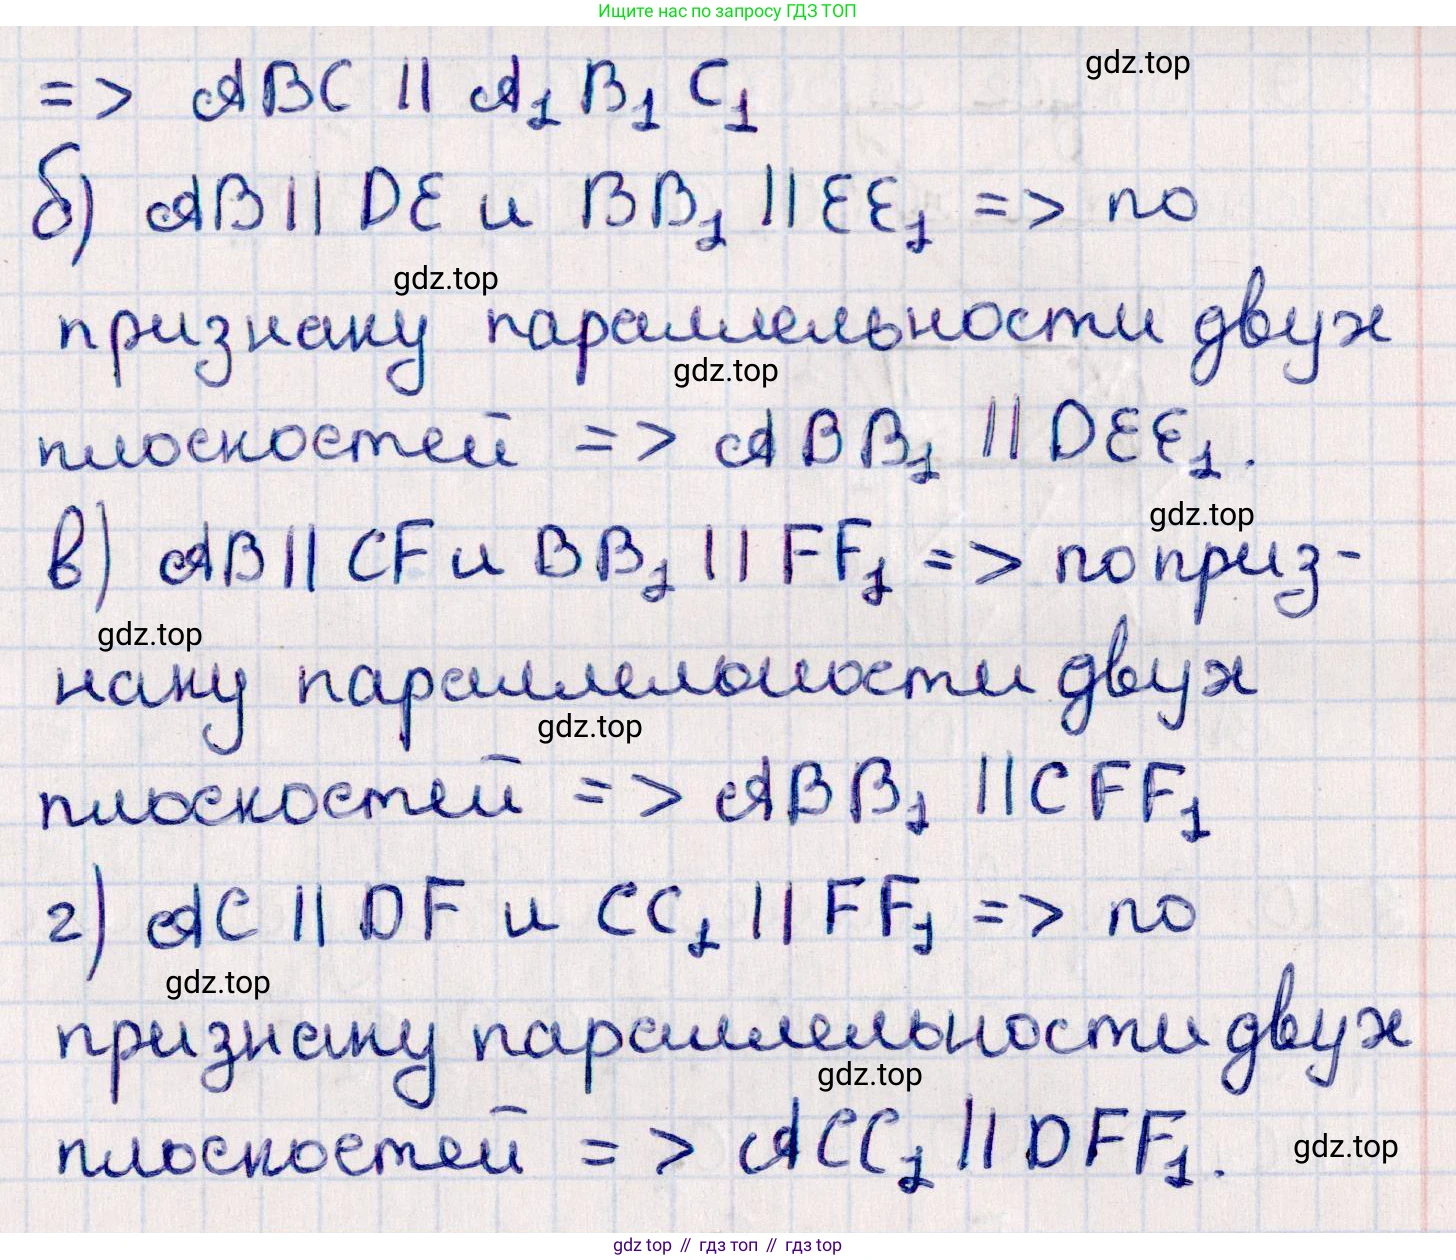 Ищите нас по запросу ГДЗ ТОП
=> ABC || A₁B₁C₁
gdz.top
б) AB || DE и BB₁ || EE₁ => по
gdz.top
признаку параллельности двух
gdz.top
плоскостей => ABB₁ || DEE₁.
gdz.top
в) AB || CF и BB₁ || FF₁ => по приз-
gdz.top
наку параллельности двух
gdz.top
плоскостей => ABB₁ || CFF₁
г) AC || DF и CC₁ || FF₁ => по
gdz.top
признаку параллельности двух
gdz.top
плоскостей => ACC₁ || DFF₁.
gdz.top
gdz top // гдз топ // гдз top